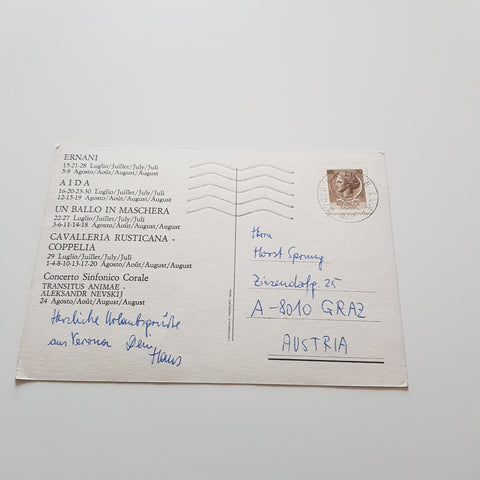 ERNANI
15-21-28 Luglio/Juillet/July/Juli
5-9 Agosto/Août/August/August
AIDA
16-20-23-30 Luglio/Juillet/July/Juli
12-15-19 Agosto/Août/August/August
UN BALLO IN MASCHERA
22-27 Luglio/Juillet/July/Juli
3-6-11-14-18 Agosto/Août/August/August
CAVALLERIA RUSTICANA -
COPPELIA
29 Luglio/Juillet/July/Juli
1-4-8-10-13-17-20 Agosto/Août/August/August
Concerto Sinfonico Corale
TRANSITUS ANIMAE -
ALEKSANDR NEVSKIJ
24 Agosto/Août/August/August
Herzliche Urlaubsgrüße
aus Verona Dein
Hans
Herrn
Horst Sprung
Zinzendorfg. 25
A-8010 GRAZ
AUSTRIA